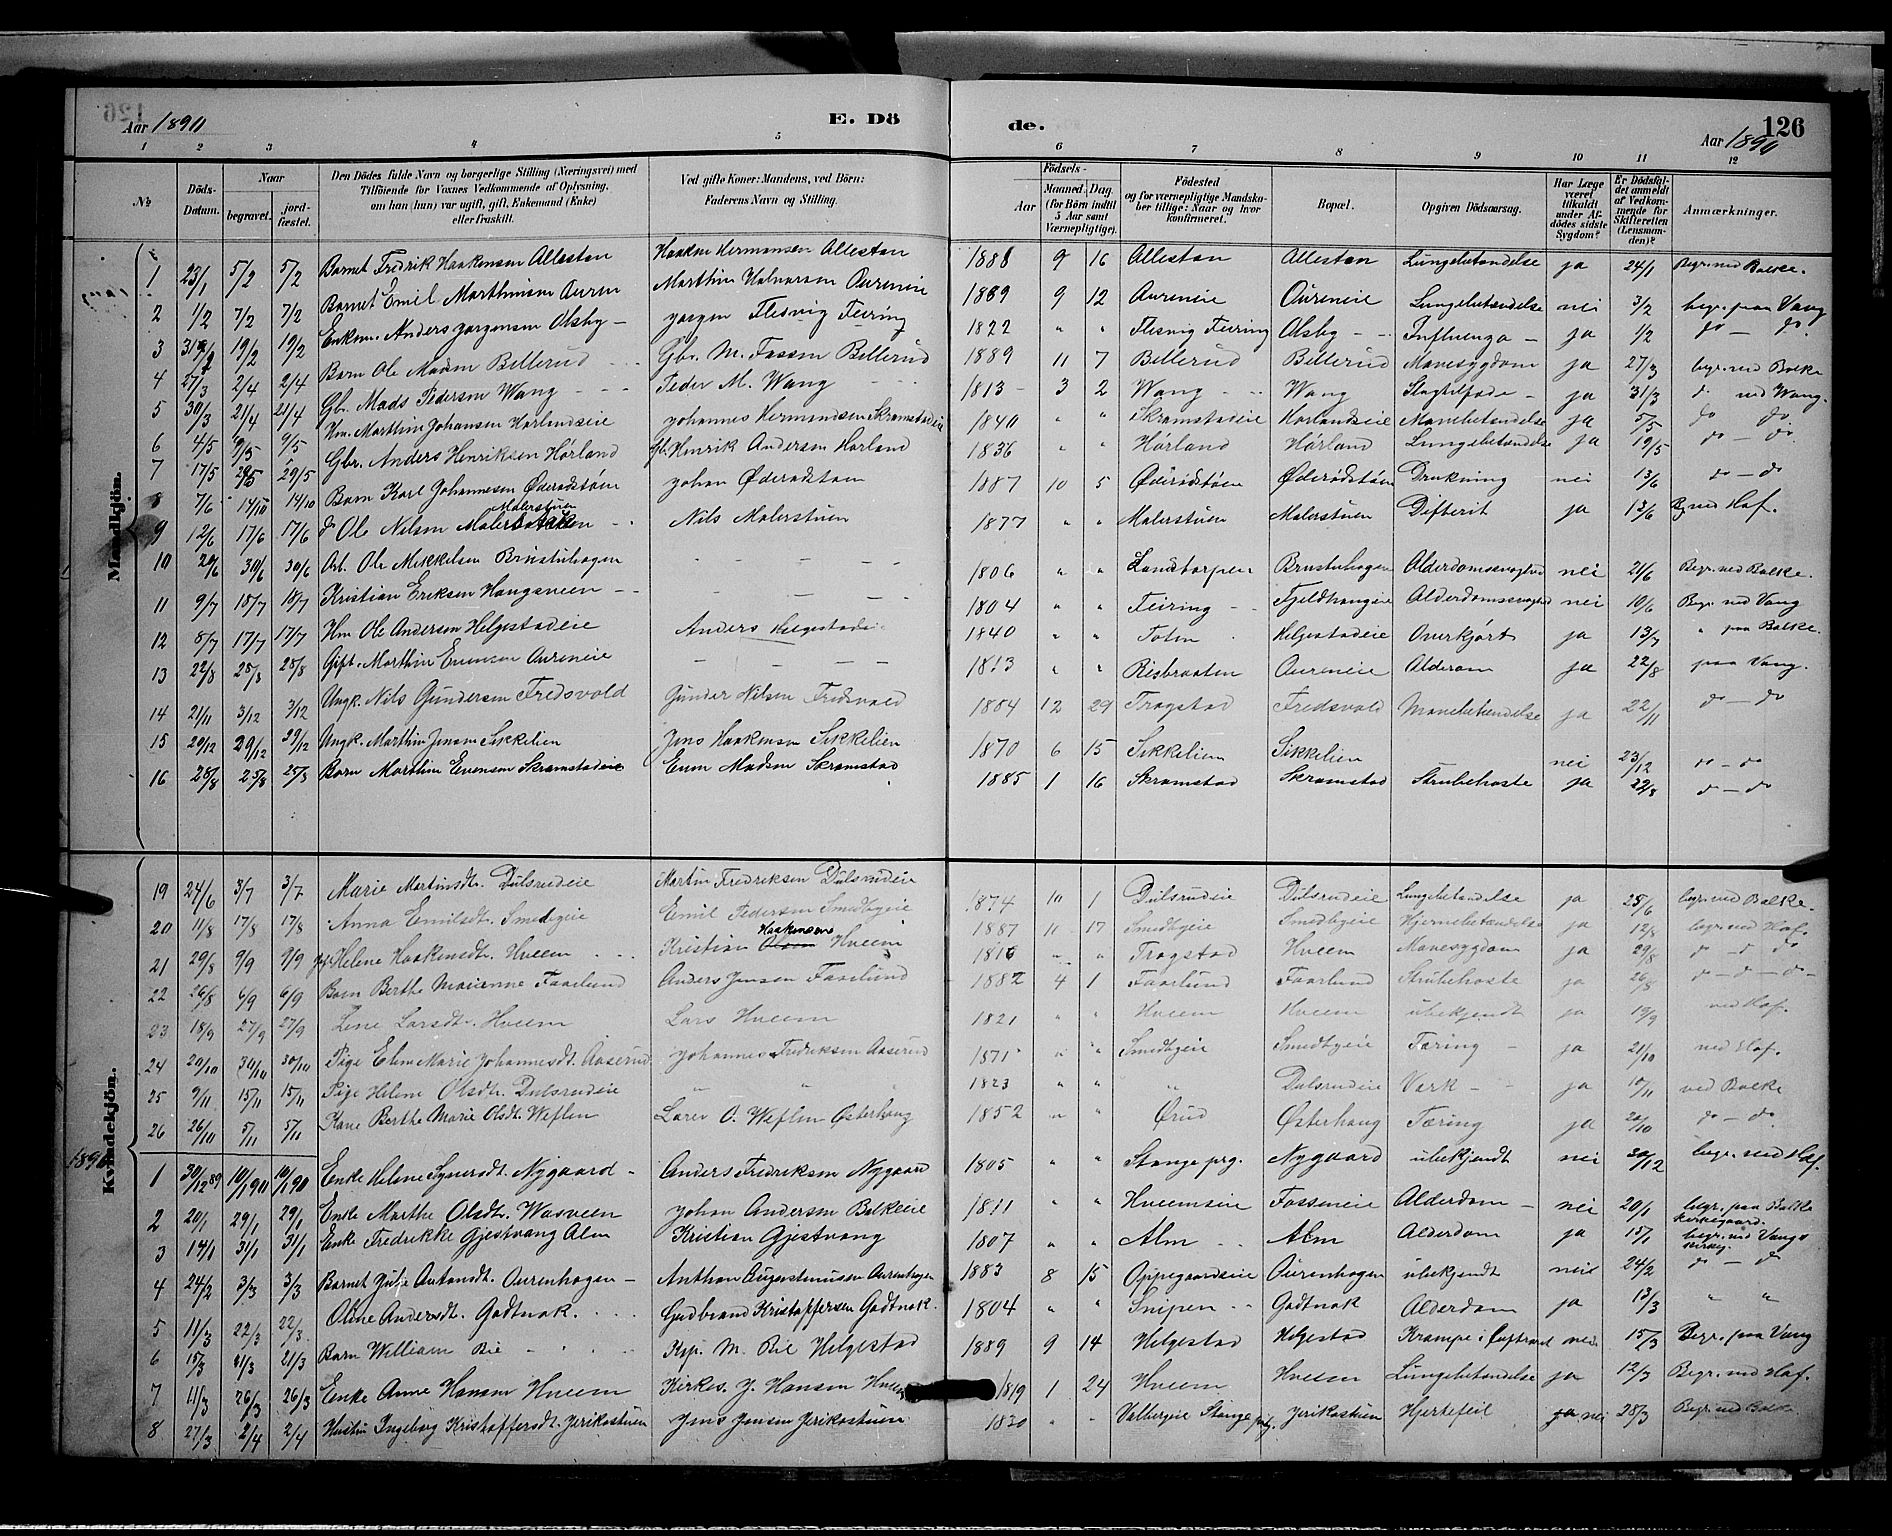 126
Aar 1890
E. Dö
de.
Aar 1890
126
1 2 3 4 5 6 7 8 9 10 11 12
No.
Döds-Datum.
Naar
begravet.
jordfæstet.
Den Dödes fulde Navn og borgerlige Stilling (Næringsvei) med Tilföiende for Voxnes Vedkommende af Oplysning, om han (hun) var ugift, gift, Enkemand (Enke) eller fraskilt.
Ved gifte Koner: Mandens, ved Börn: Faderens Navn og Stilling.
Födsels-
Aar
Maaned. Dag.
(for Börn indtil 5 Aar samt Værnepligtige).
Födested og for værnepligtige Mandskaber tillige: Naar og hvor konfirmeret.
Bopæl.
Opgiven Dödsaarsag.
Har Læge været tilkaldt under Afdödes sidste Sygdom?
Er Dödsfaldet anmeldt af Vedkommende for Skifteretten (Lensmanden)?
Anmærkninger.
Mandkjön.
1 23/1 5/2 5/2 Barnet Fredrik Haakensen Allestan Haaken Hermansen Allestan 1888 9 16 Allestan Allestan Lungebetændelse ja 24/1 Begr. ved Balke.
2 1/2 7/2 7/2 Barnet Emil Marthinsen Auren Marthin Halvorsen Aureneie 1889 9 12 Aureneie Aureneie Lungebetændelse nei 3/2 begr. paa Vang
3 19/2 19/2 Enkem. Anders Jørgensen Olsby – Jørgen Flesvig Feiring 1822 " " Flesvig Feiring Olsby – – Influenza – ja 1/2 do – do
4 27/3 2/4 2/4 Barn Ole Madsen Billerud Gbr. M. Fossen Billerud 1889 11 7 Billerud Billerud Mavesygdom ja 27/3 begr. ved Balke
5 30/3 21/4 21/4 Gbr. Mads Pedersen Wang – – – Peder M. Wang 1813 – 3 2 Wang Wang ja 31/3 ved Wang.
6 4/5 9/5 9/5 Hm. Marthin Johansen Hørlandseie Johannes Hermandsen Skramstadeie 1840 " " Skramstadeie Mavebetændelse ja 5/5 do do
7 17/5 29/5 29/5 Gbr. Anders Henriksen Hørland Gb. Henrik Andersen Hørland 1836 " Hørland Hørland Lungebetændelse ja 19/5 do – do
8 7/6 14/10 14/10 Barn Karl Johannesen Øderødstøen Johan Øderødstøen 1887 10 5 Øderødstøen Øderødstøen Drukning nei 13/6 do – do
Malerstuen
9 12/6 17/6 17/6 Ole Nilsen Nils Malerstuen 1877 " " Malerstuen Malerstuen Difterit ja 13/6 ved Hof.
10 20/6 30/6 30/6 Arb. Ole Mikkelsen Brustuhagen – – – – 1806 " " Landtorpen Brustuhagen nei 21/6 Begr. ved Balke.
11 9/7 18/7 18/7 Kristian Eriksen Haugsveen – – – – – – 1804 " " Feiring – – Fjeldhaugeie nei 10/6 Begr. ved Vang
12 8/7 17/7 17/7 Hm. Ole Andersen Helgestadeie Anders Helgestadeie 1840 " " Toten Helgestadeie Overkjørt ja 13/7 " paa Balke.
13 22/8 25/8 25/8 Gift. Marthin Evensen Aureneie – – – – 1813 " " Risbraaten Aureneie Alderdom ja 22/8 paa Vang.
14 21/11 3/12 3/12 Ungk. Nils Gundersen Fredsvold Gunder Nilsen Fredsvold 1884 12 29 Trogstad Fredsvold Mavebetændelse ja 22/11 do – do
15 20/12 29/12 29/12 Ungk. Marthin Jensen Sikkelien Jens Haakensen Sikkelien 1870 6 15 Sikkelien Sikkelien nei 23/12 do – do
16 28/8 25/8 25/8 Barn Marthin Evensen Skramstadeie Even Madsen Skramstad 1885 1 16 Skramstad Skramstad Strubehoste ja 22/8 do – do
Kvindekjön.
19 24/6 3/7 3/7 Marie Martinsdt. Dulsrudeie Martin Fredriksen Dulsrudeie 1874 10 1 Dulsrudeie Dulsrudeie Lungebetændelse ja 25/6 begr. ved Balke.
20 11/8 17/8 17/8 Anna Emilsdt. Smedbyeie Emil Pedersen Smedbyeie 1887 11 17 Smedbyeie Smedbyeie Hjernebetændelse ja 12/8 begr. ved Hof.
Haakensen
21 29/8 9/9 9/9 Helene Haakensdt. Hveem Kristian Olsen Hveem 1816 " " Trogstad Hveem Mavesygdom ja 29/8 do do do
22 26/8 6/9 6/9 Barn Berthe Marienne Faarlund Anders Jensen Faarlund 1882 4 1 Faarlund Faarlund Strubehoste ja 26/8 do – do – do
23 18/9 27/9 27/9 Lene Larsdt. Hveem Lars Hveem 1821 " " Hveem Hveem ubekjendt ja 19/9 ved Hof.
24 20/10 30/10 30/10 Pige Elen Marie Johannesdt. Aaserud Johannes Fredriksen Aaserud 1871 " " Smedbyeie Smedbyeie Tæring – ja 21/10 ved Hof.
25 9/11 15/11 15/11 Pige Helene Olsdt. Dulsrudeie " " " 1823 " " " Dulsrudeie Værk – ja 10/11 ved Balke
26 26/10 5/11 5/11 Kone Berthe Marie Olsdt. Weflen O. Weflen Østerhaug 1852 " " Ørud Østerhaug Tæring ja 20/10 do – do
1890
1 30/12 89 10/1 90 10/1 90 Enke Helene Syversdt. Nygaard – Anders Fredriksen Nygaard 1805 " " Stange prg. Nygaard ubekjendt nei 30/12 begr. ved Hof.
2 20/1 29/1 29/1 Enke Marthe Olsdt. Wasveen Johan Andersen Balkeeie 1811 " " Hveemseie Fosseneie Alderdom – nei 20/1 begr. paa Balke kirkegaard.
3 14/1 31/1 31/1 Enke Fredrikke Gjestvang Alm Kristian Gjestvang 1807 " " Alm – – Alm Alderdom ja 15/1 begr. ved Vangs kirke.
4 24/2 3/3 3/3 Barnet Julie Antonsdt. Aurenhagen – Anthon Augustinusen Aurenhagen 1883 8 15 Oppegaardseie Aurenhagen ubekjendt nei 24/2 do – d
5 11/3 22/3 22/3 Oline Andersdt. Godtnok. Gudbrand Kristoffersen Godtnok. 1804 " " Snipen – – Godtnok Alderdom ja 13/3 " "
6 15/3 21/3 21/3 Barn William Bie – Kap. M. Bie Helgestad 1889 9 14 Helgestad Helgestad Krampe i nei 15/3 Begr. paa Vang
7 11/3 26/3 26/3 Enke Anne Hansen Hveem Kirkes. J. Hansen Hveem 1819 1 24 Hveem Hveem Lungebetændelse ja 12/3 Begr. ved Hof.
8 27/3 2/4 2/4 Hustru Ingeborg Kristoffersdt. Jerikostuen Jens Jensen Jerikostuen 1820 " " Valbergeie Stange prg. Jerikostuen Hjertefeil ja nei 28/3 Begr. ved Balke.